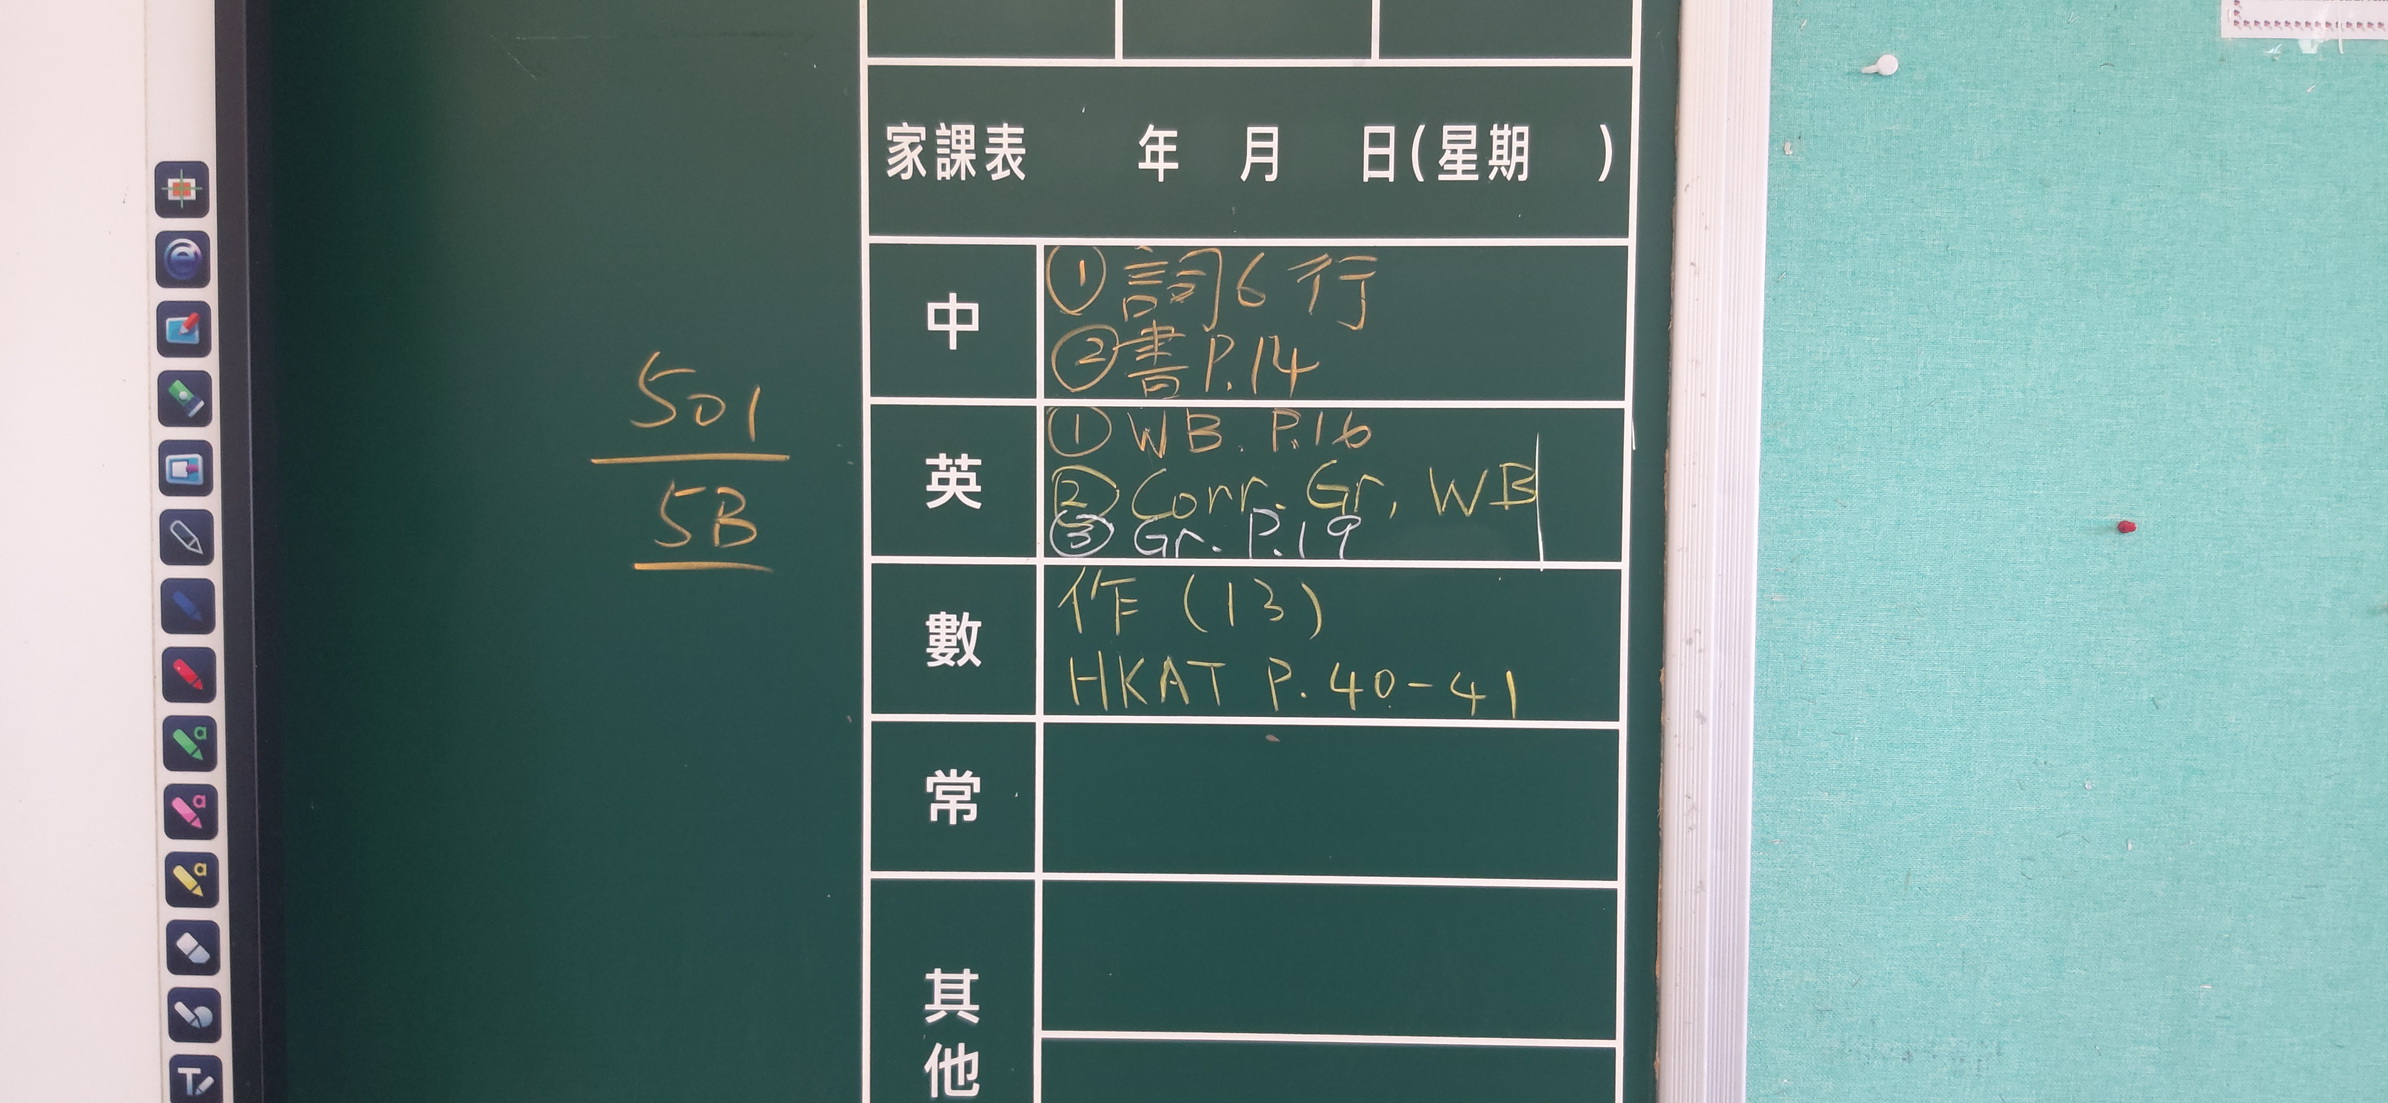 家課表 年 月 日(星期 )
501
5B
中
① 詞6行
② 書P.14
英
① WB. P.16
② Corr. Gr, WB
③ Gr. P.19
數
作 (13)
HKAT P.40-41
常
其他